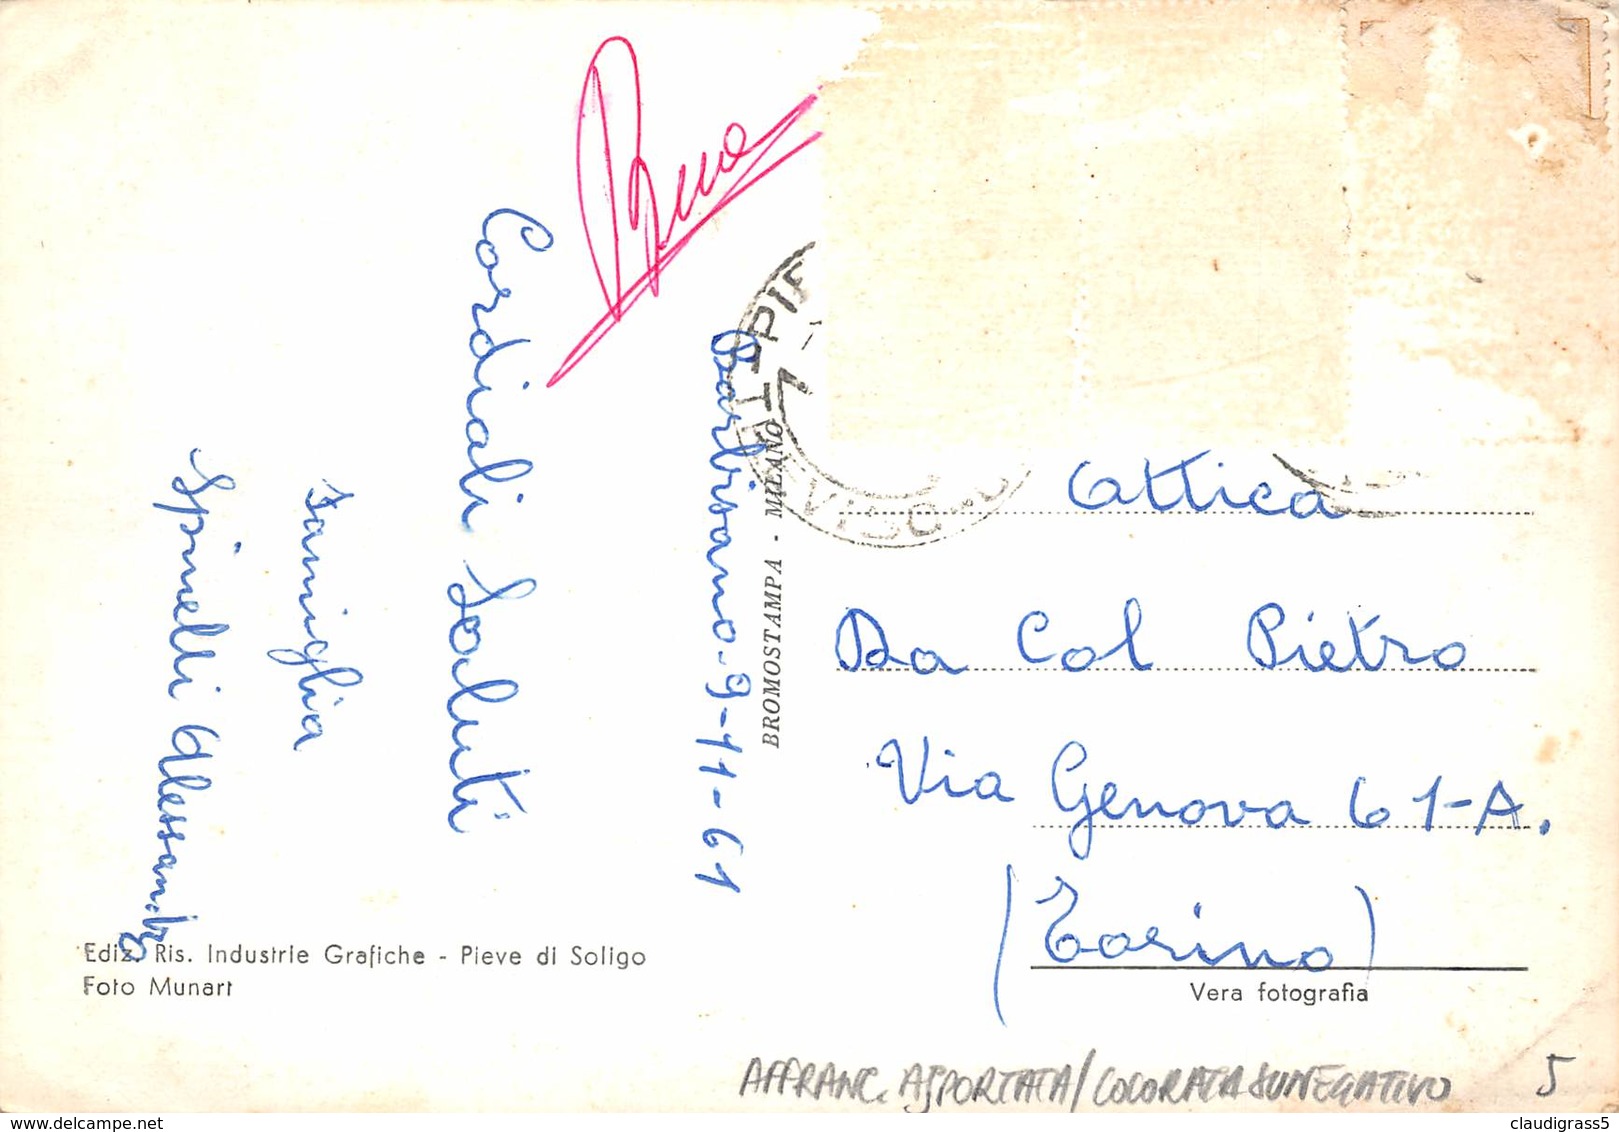 Barbisano-9-11-61
Cordiali Saluti
Famiglia
Spinelli Alessandro
BROMOSTAMPA - MILANO
Attica
Da Col Pietro
Via Genova 61-A.
(Torino)
Vera fotografia
Ediz. Ris. Industrie Grafiche - Pieve di Soligo
Foto Munart
AFFRANC. ASPORTATA/COLORATA SU NEGATIVO 5
claudigrass5